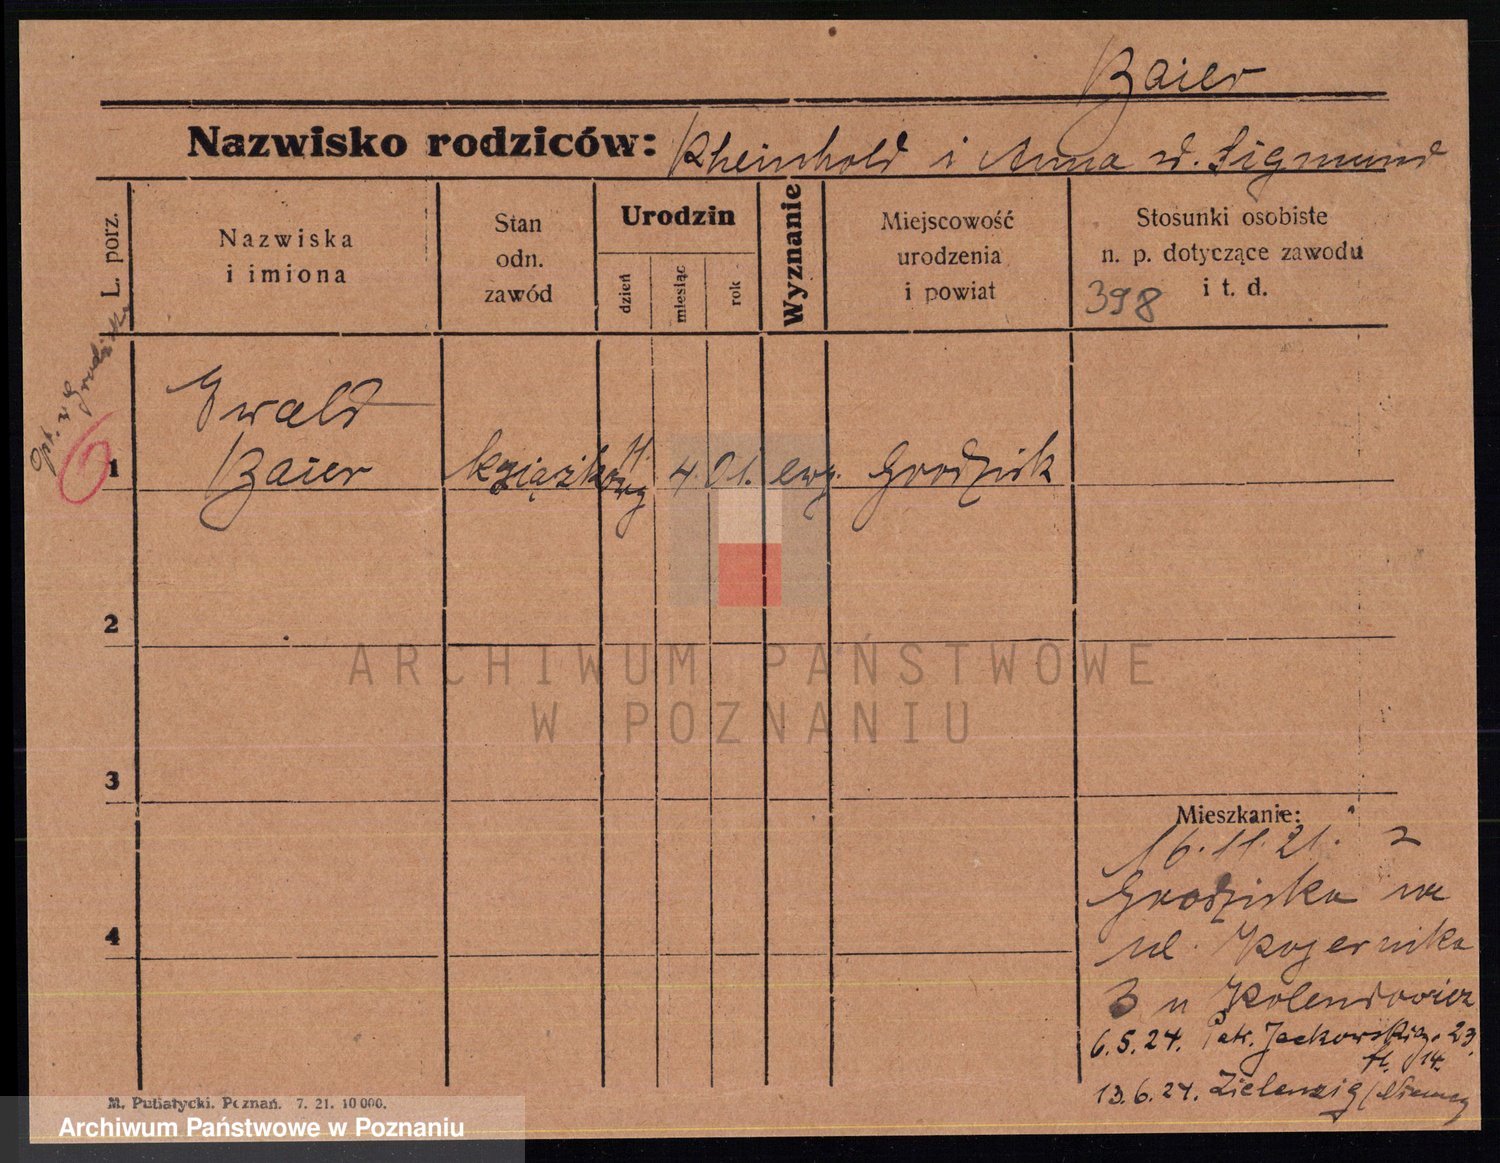 Baier
Nazwisko rodziców: Rheinhold i Anna d. Sigmund
L. porz.
Nazwiska
i imiona
Stan
odn.
zawód
Urodzin
dzień
miesiąc
rok
Wyznanie
Miejscowość
urodzenia
i powiat
Stosunki osobiste
n. p. dotyczące zawodu
i t. d.
398
Opt. z Grodziska
1
Ewald
Baier
książkowy
11. 4. 01. ewg. Grodzisk
2
ARCHIWUM PAŃSTWOWE
W POZNANIU
3
Mieszkanie:
16.11.21. z
Grodziska na
ul. Kopernika
3 u Kolendowicz
6.5.24. Patr. Jackowskiego 23
14.
13.6.24. Zielenzig (Niemcy
4
M. Putiatycki. Poznań. 7. 21. 10 000.
Archiwum Państwowe w Poznaniu